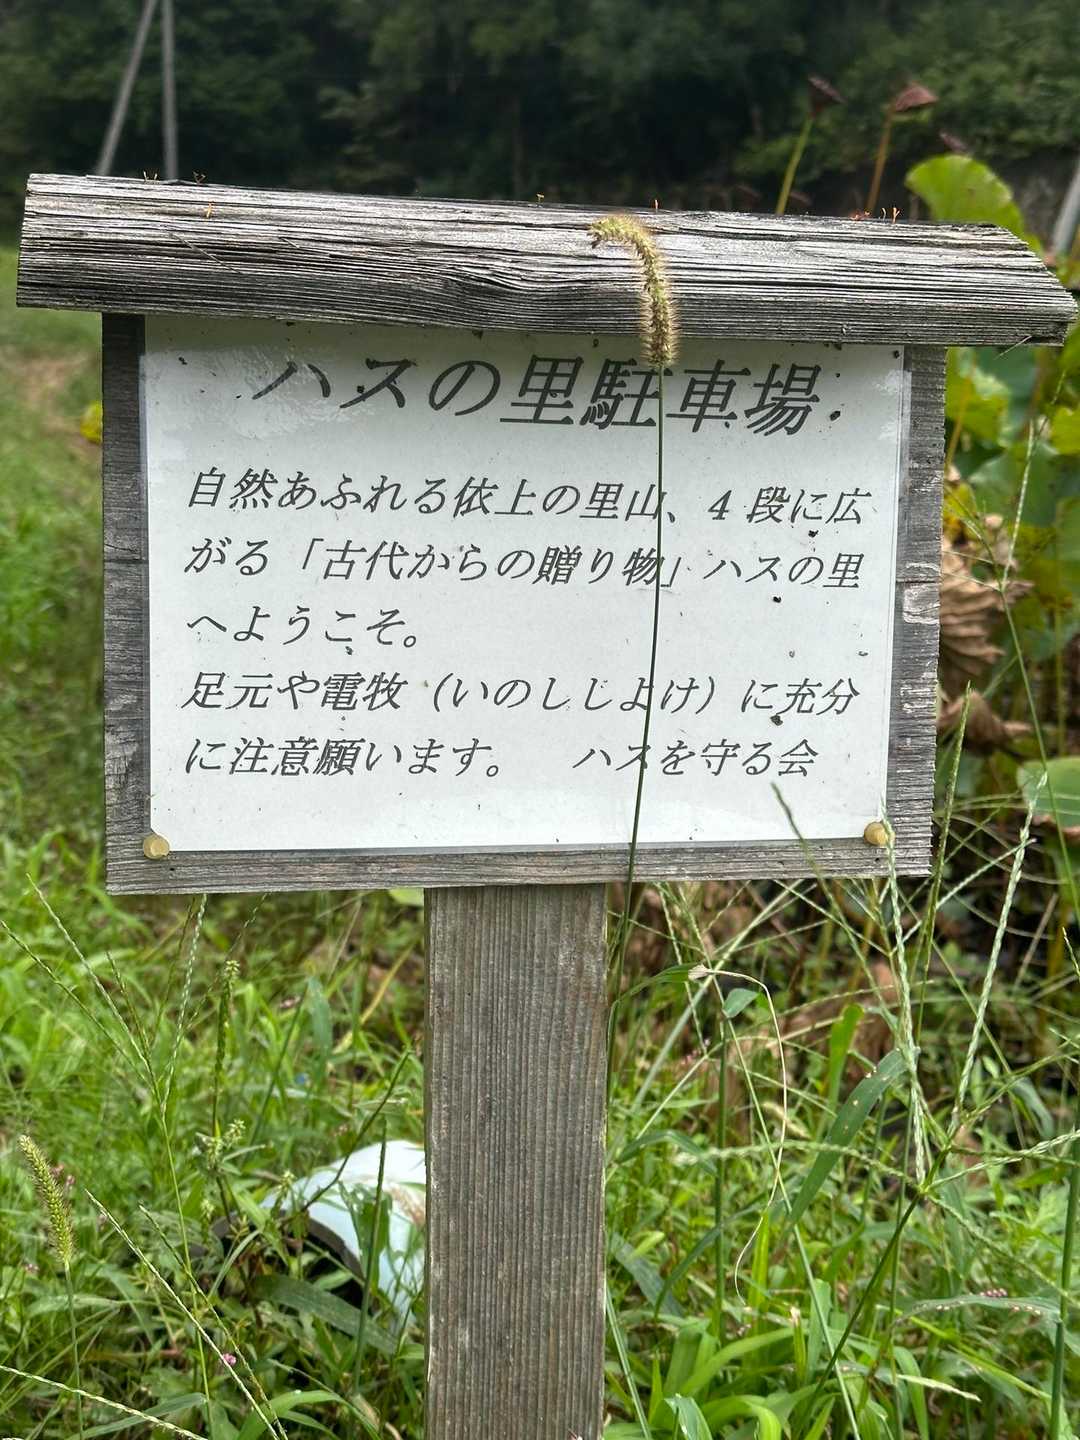 ハスの里駐車場
自然あふれる依上の里山、4段に広
がる「古代からの贈り物」ハスの里
へようこそ。
足元や電牧（いのししよけ）に充分
に注意願います。　ハスを守る会